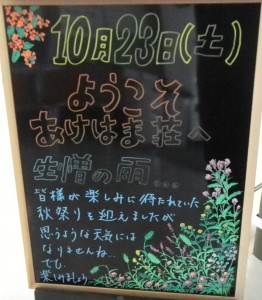 10月23日(土)
ようこそ
あけはま荘へ
生憎の雨...
皆様が楽しみに待たれていた
秋祭りを迎えましたが
思うような天気には
なりませんね…
でも
楽しみましょう